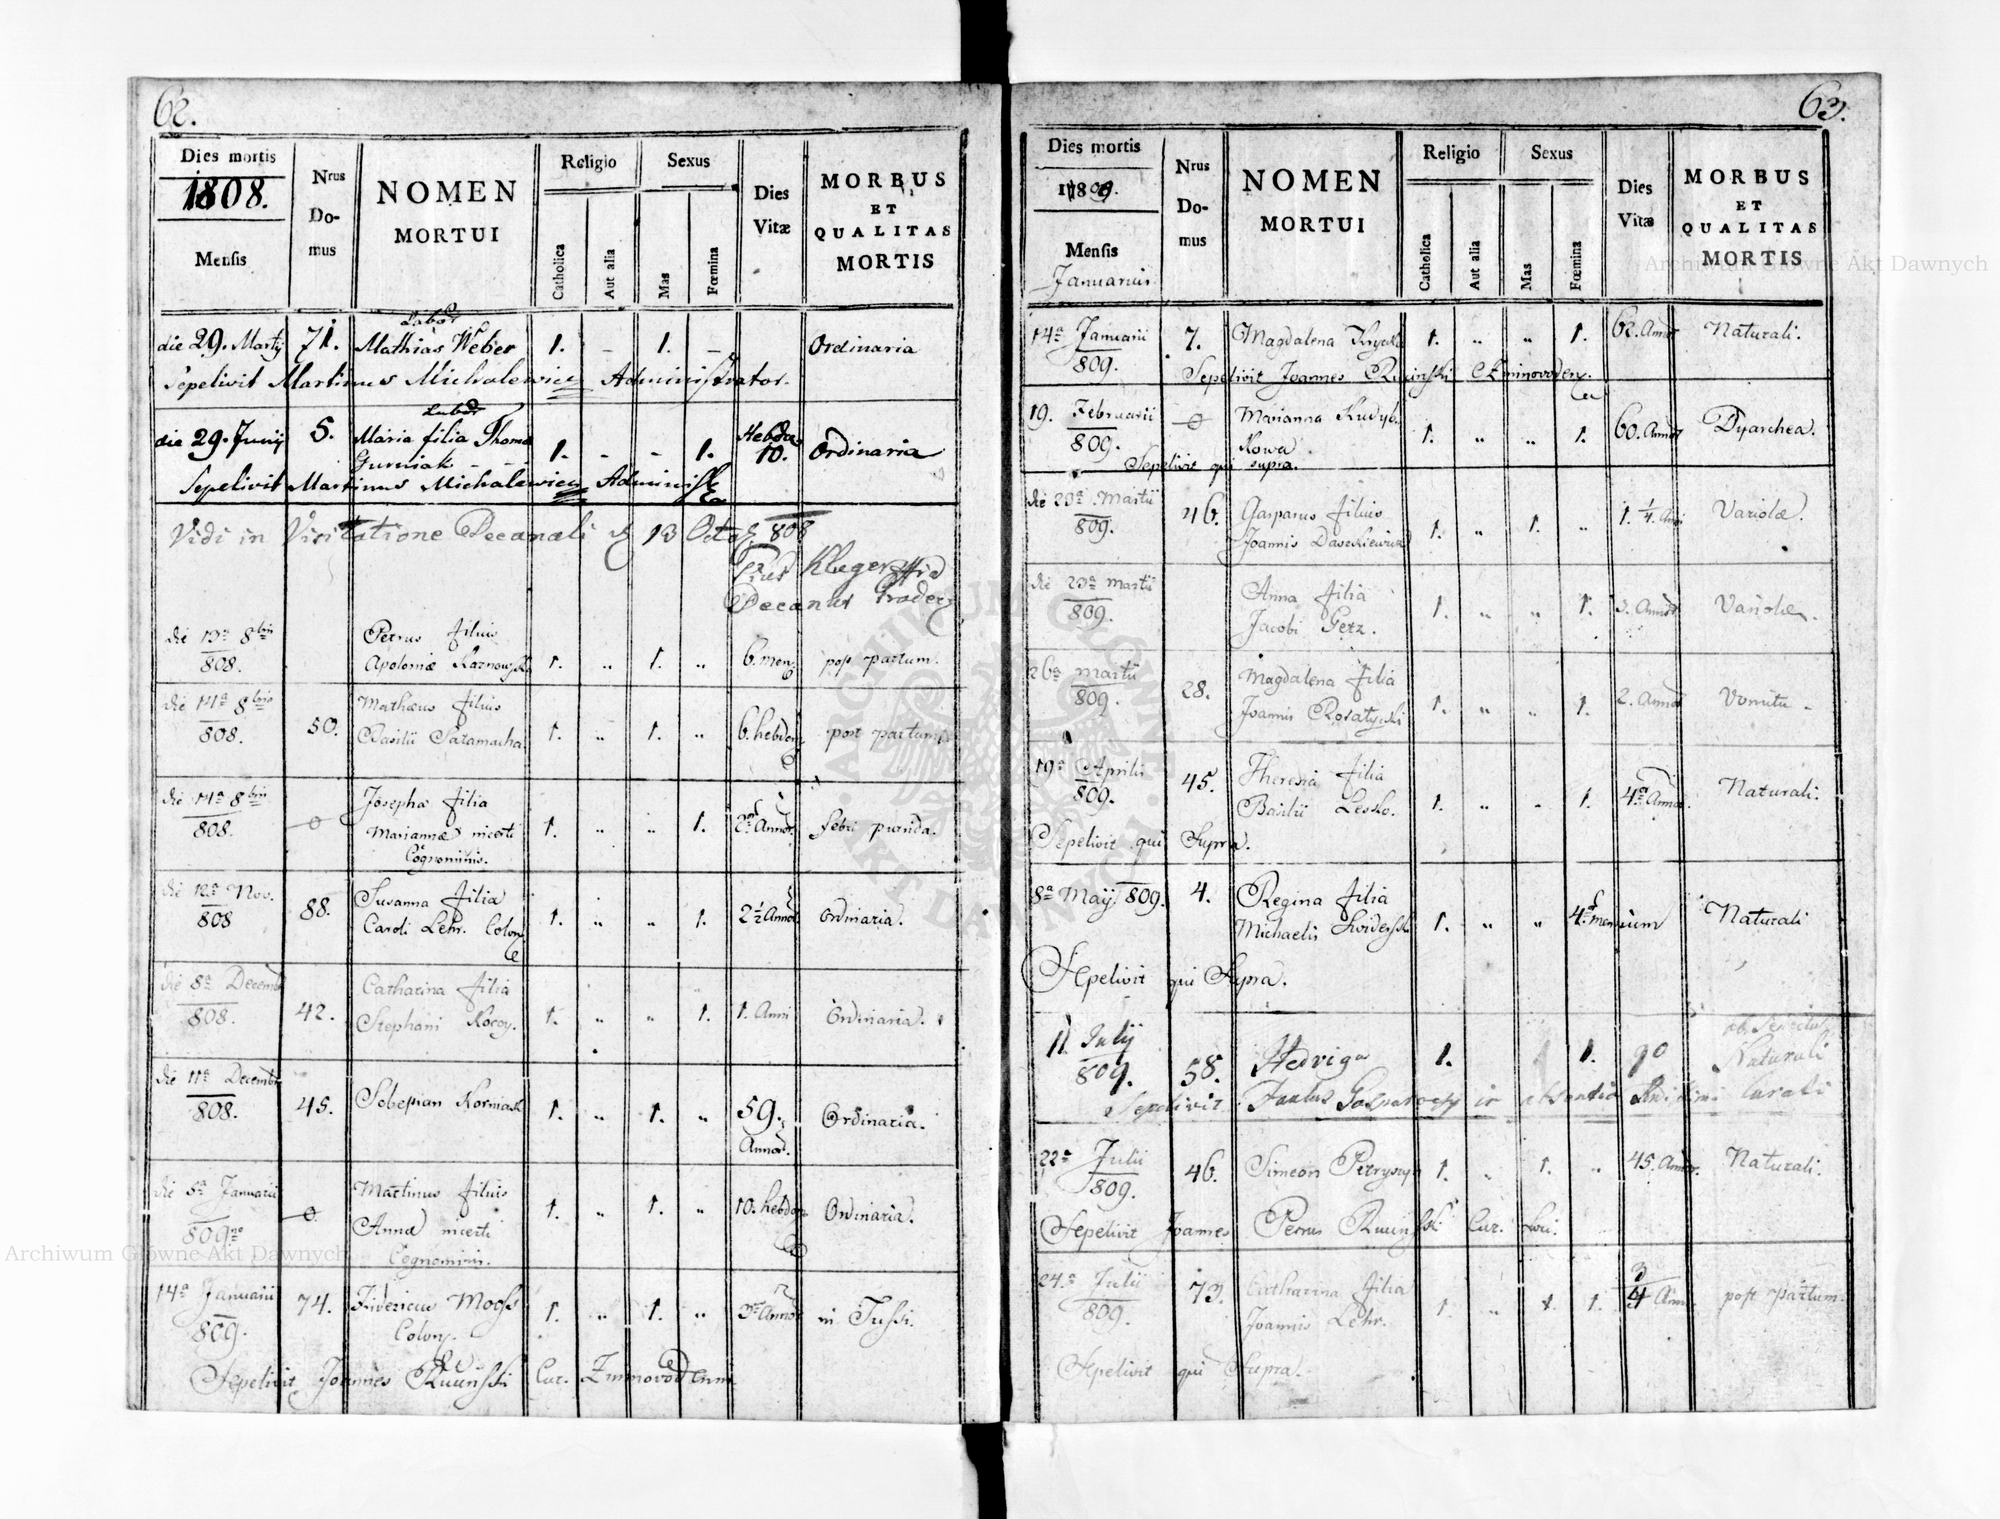 62.
Dies mortis
1808.
Mensis
Nrus
Do-
mus
NOMEN
MORTUI
Religio
Catholica
Aut alia
Sexus
Mas
Fœmina
Dies
Vitæ
MORBUS
ET
QUALITAS
MORTIS
Labor
die 29. Martÿ 71. Mathias Weber 1. – 1. – Ordinaria
Sepelivit Martinus Michalewicz Administrator.
Labor
die 29. Junÿ 5. Maria filia Thomæ 1. - - 1. Hebdo 10. Ordinaria
Gurniak
Sepelivit Martinus Michalewicz Administ
Vidi in Visitatione Decanali d 13 Octo 808
Kluger
Decanus
die 13a 8bris Petrus filius
808. Apoloniæ 1. „ 1. „ 6. men post partum.
die 14a 8bris Mathæus filius
808. 50. Basilii Satamacha 1. „ 1. „ 6. hebdom post partum
die 14a 8bris Josepha filia
808. Mariannæ incerti 1. „ „ 1. 2 Annor. febri
Cognominis.
die 12a Nov. Susanna filia
808 88. Caroli Lehr. Colon 1. „ „ 1. 2½ Annor Ordinaria.
die 8a Decemb Catharina filia
808. 42. Stephani Kocoy. 1. „ „ 1. 1. Anni Ordinaria.
die 11a Decemb
808. 45. Sebepian Korniak 1. „ 1. „ 59. Ordinaria.
Annor.
die 5a Januarii Martinus filius
809no Annæ incerti 1. „ 1. „ 10. hebdom Ordinaria.
Cognominis.
14a Januarii 74. Fridericus Moghs 1. „ 1. „ 3 Annor in Tussi.
809. Colon
Sepelivit Joannes Rucinski Cur. Zimnovodens
63.
Dies mortis
1809.
Mensis
Januarius
Nrus
Do-
mus
NOMEN
MORTUI
Religio
Catholica
Aut alia
Sexus
Mas
Fœmina
Dies
Vitæ
MORBUS
ET
QUALITAS
MORTIS
14a Januarii 7. Magdalena 1. „ „ 1. 62. Annor Naturali.
809.
Sepelivit Joannes Rucinski
19. Februarii Marianna Kudyb
809. Kowa 1. „ „ 1. 60. Annor Dyarrhea.
Sepelivit qui supra.
die 23a Martii 46. Gasparus filius
809. Joannis Daszkiewicz 1. „ 1. „ 1. ¼. Anni Variolæ.
die 23a martii Anna filia
809. Jacobi Getz. 1. „ „ 1. 3. Annor Variolæ.
26a martii 28. Magdalena filia
809. Joannis Rosatynski 1. „ „ 1. 2. Annor Vomitu.
19a Aprilis 45. Theresia filia
809. Basilii Lesko. 1. „ „ 1. 4a Annor. Naturali.
Sepelivit qui Supra.
8a Maÿ 809. 4. Regina filia
Michaelis 1. „ „ 4. mensium Naturali
Sepelivit qui Supra.
11 Julÿ
809. 58. Hedviga 1. 1. 90 Naturali
Sepelivit Paulus in absentia Curati
22a Julii
809. 46. Simeon Petryszyn 1. „ 1. „ 45. Annor. Naturali.
Sepelivit Joannes Petrus Rucinski Cur. Loci.
24a Julii 73. Catharina filia
809. Joannis Lehr. 1. „ 1. ¾ Anni post Partum.
Sepelivit qui Supra.
Archiwum Główne Akt Dawnych
Archiwum Główne Akt Dawnych
ARCHIWUM GŁÓWNE
AKT DAWNYCH